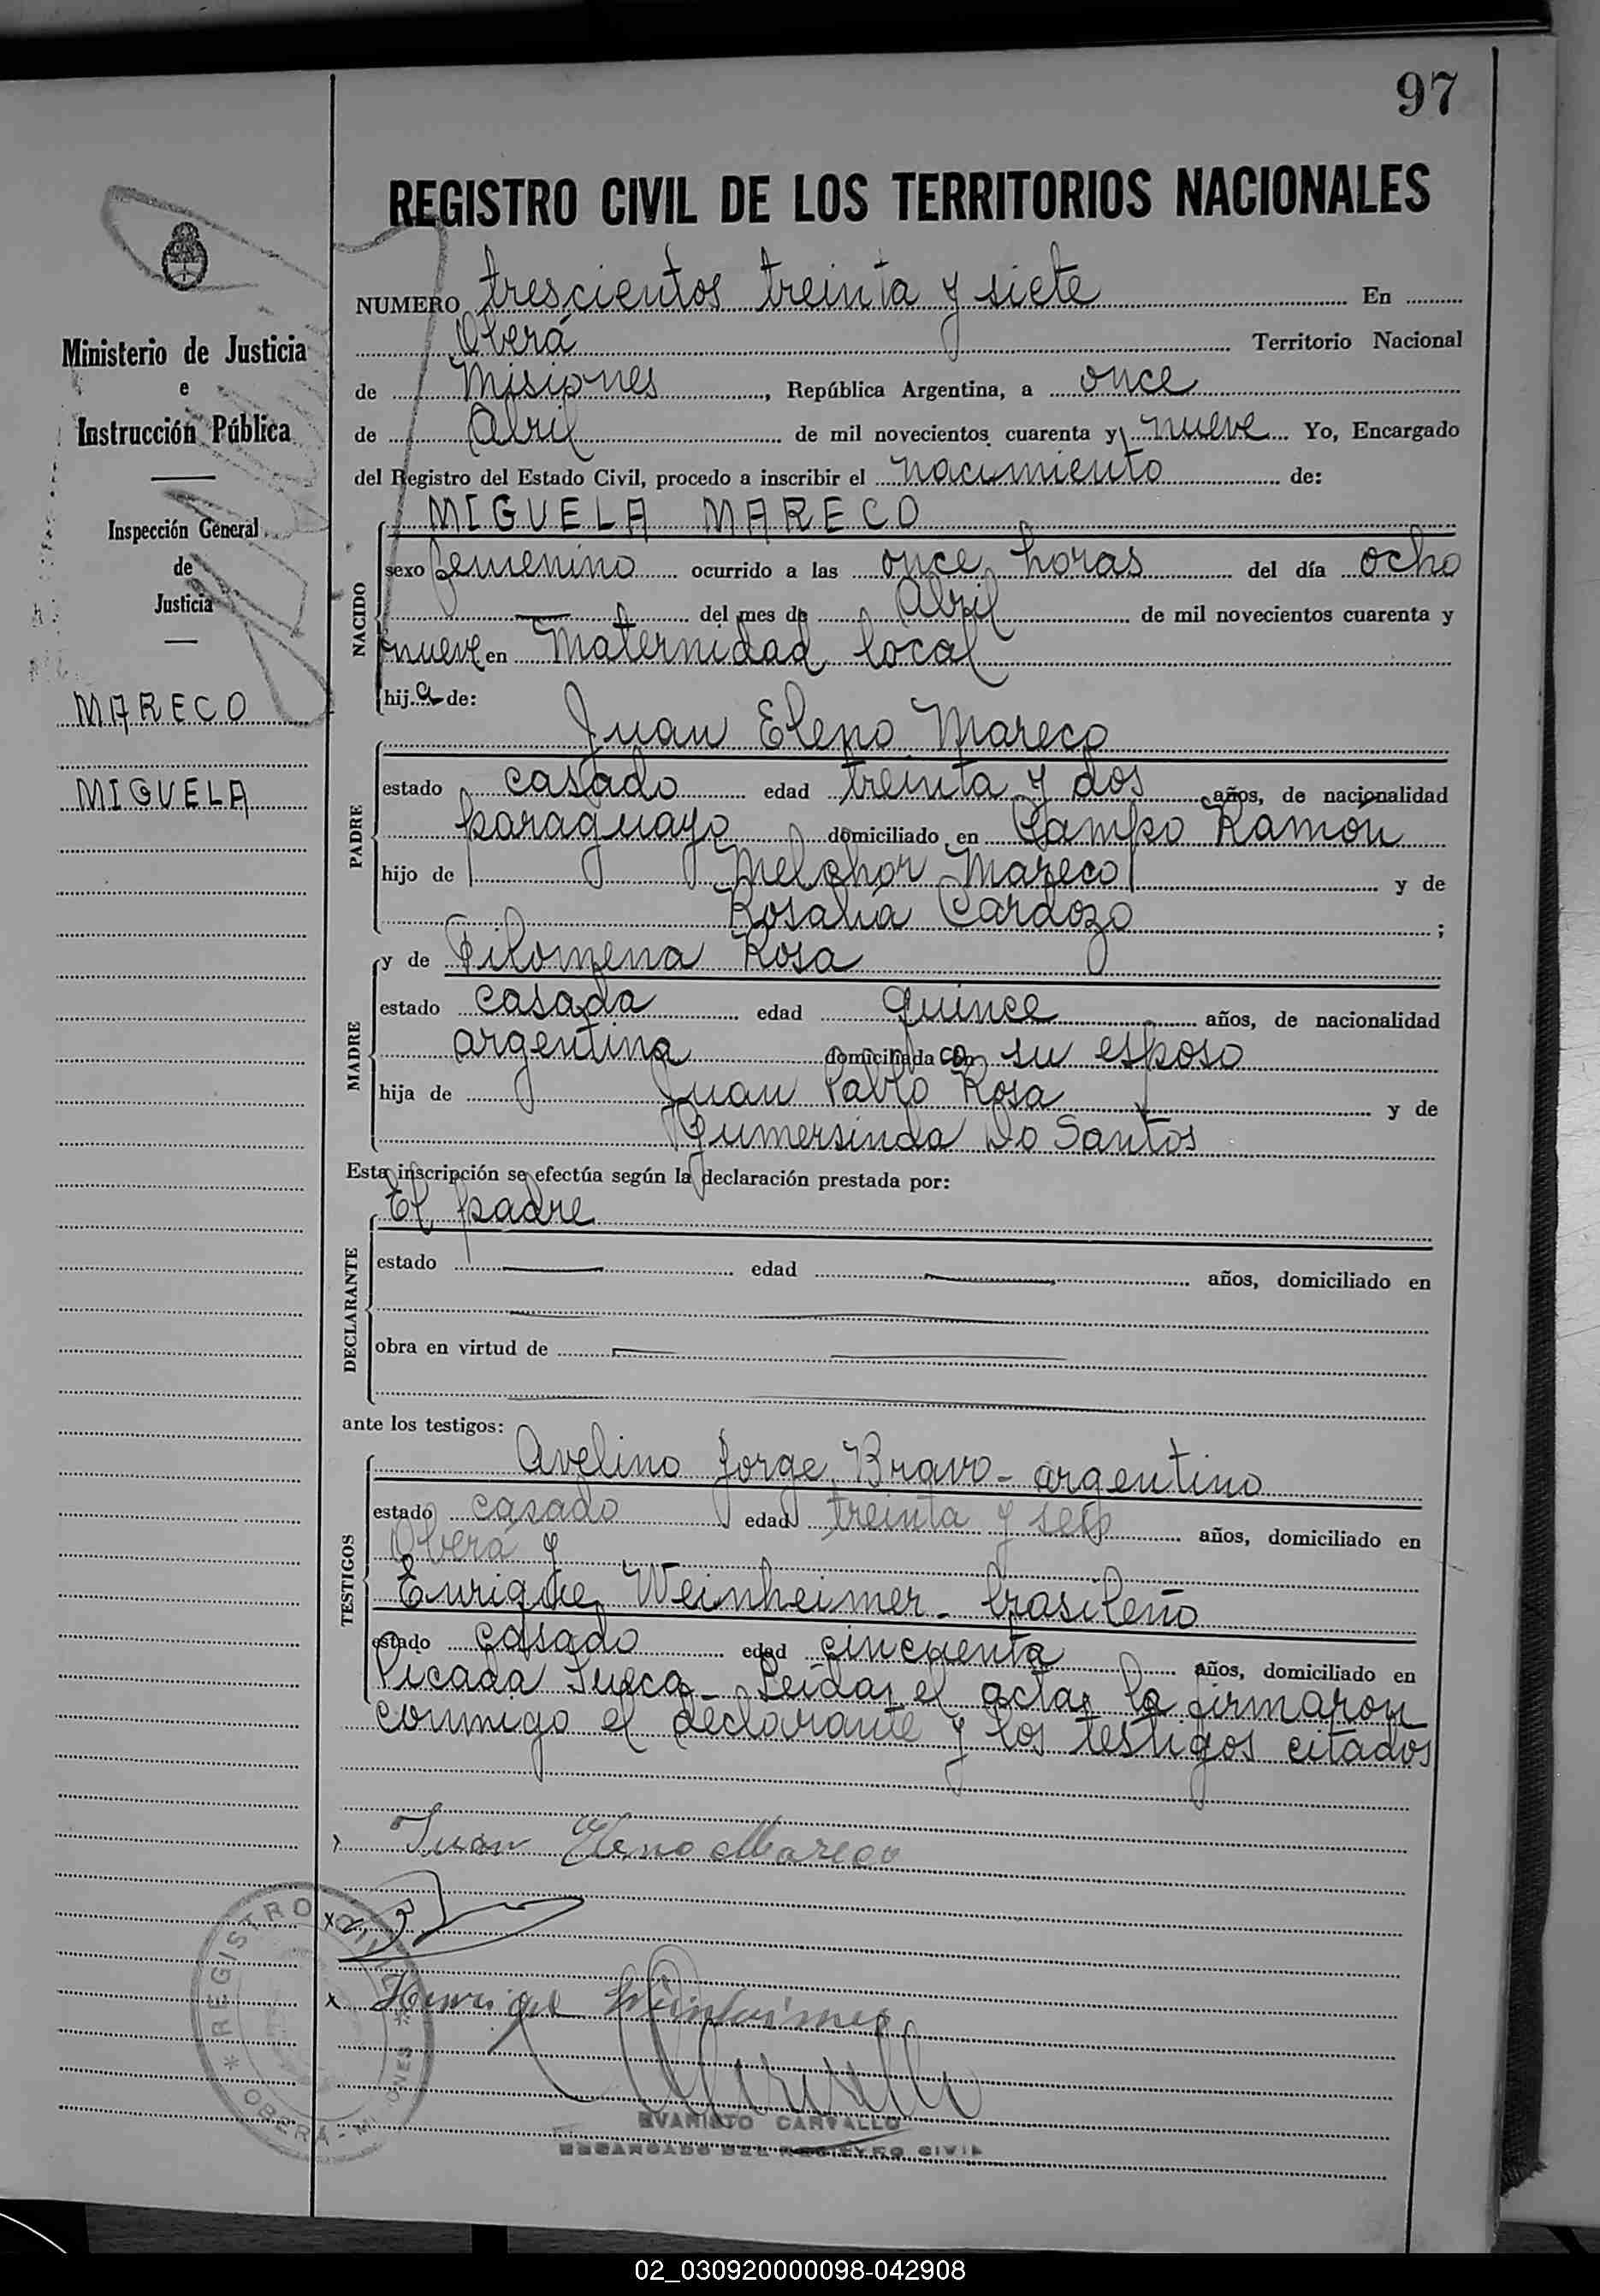 97
REGISTRO CIVIL DE LOS TERRITORIOS NACIONALES
Ministerio de Justicia
e
Instrucción Pública
Inspección General
de
Justicia
MARECO
MIGUELA
NUMERO trescientos treinta y siete En
Oberá Territorio Nacional
de Misiones, República Argentina, a once
de Abril de mil novecientos cuarenta y nueve Yo, Encargado
del Registro del Estado Civil, procedo a inscribir el nacimiento de:
NACIDO
MIGUELA MARECO
sexo femenino ocurrido a las once horas del día ocho
del mes de Abril de mil novecientos cuarenta y
nueve en Maternidad local
hija de:
PADRE
Juan Eleno Mareco
estado casado edad treinta y dos años, de nacionalidad
paraguayo domiciliado en Campo Ramon
hijo de Melchor Mareco y de
Rosalia Cardozo ;
MADRE
y de Filomena Rosa
estado casada edad quince años, de nacionalidad
argentina domiciliada con su esposo
hija de Juan Pablo Rosa y de
Gumersinda Do Santos
Esta inscripción se efectúa según la declaración prestada por:
DECLARANTE
El padre
estado edad años, domiciliado en
obra en virtud de
ante los testigos:
TESTIGOS
Avelino Jorge Bravo - argentino
estado casado edad treinta y seis años, domiciliado en
Oberá y
Enrique Weinheimer - brasileño
estado casado edad cincuenta años, domiciliado en
Picada Sueca - Leída el acta, la firmaron
conmigo el declarante y los testigos citados
Juan Eleno Mareco
REGISTRO CIVIL
OBERA - MISIONES
EVARISTO CARVALLO
ENCARGADO DEL REGISTRO CIVIL
02_030920000098-042908